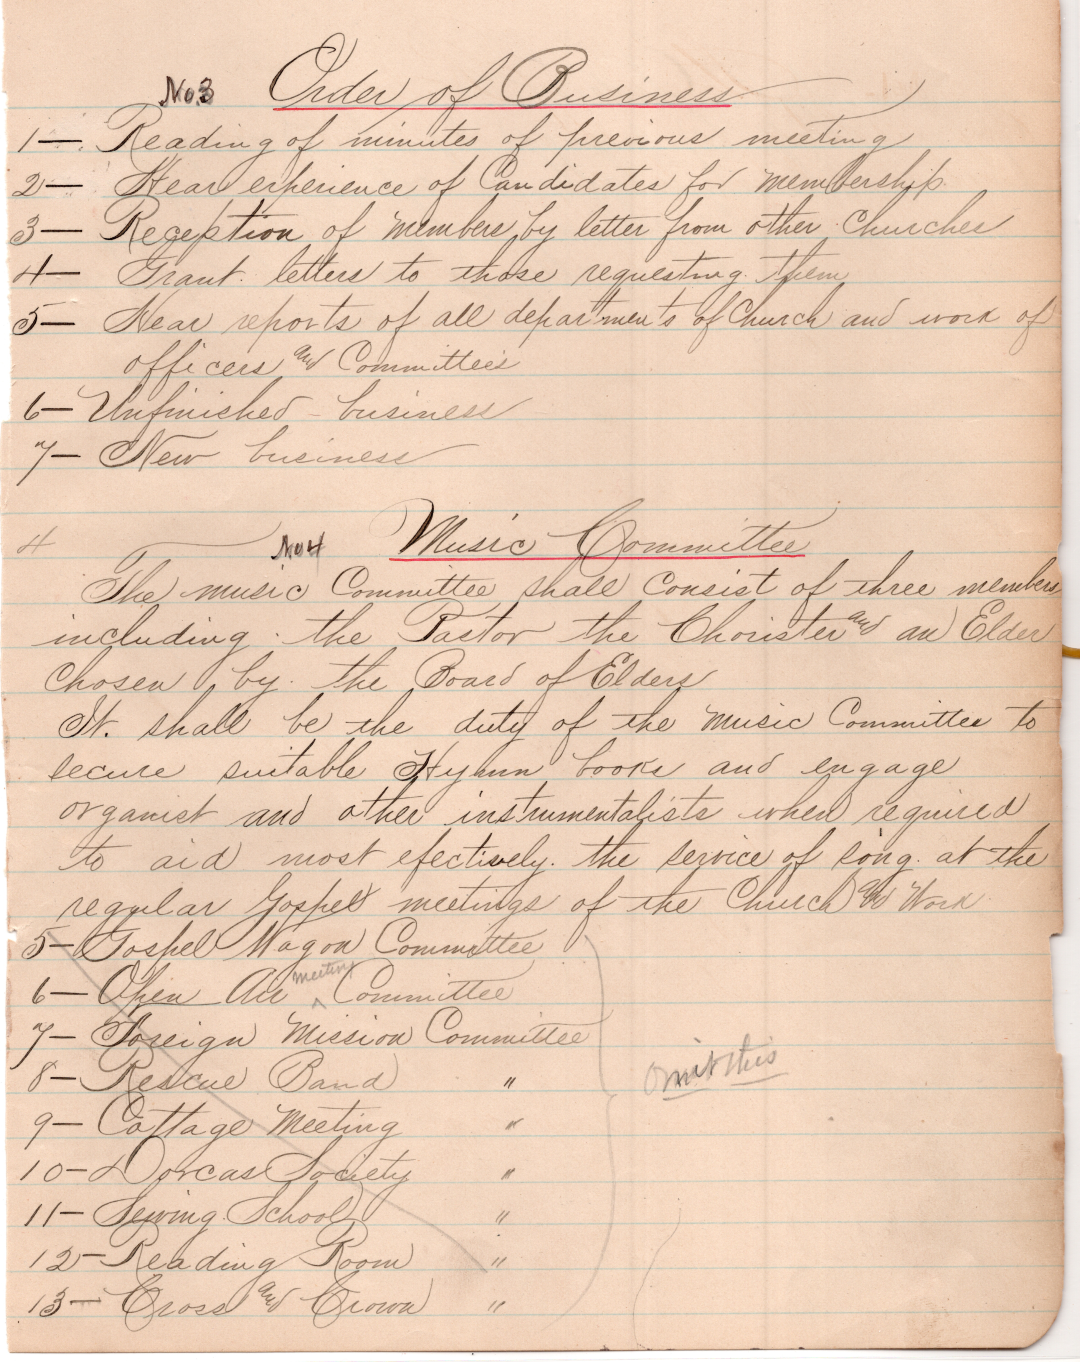 No 3 Order of Business
1— Reading of minutes of previous meeting
2— Hear experience of Candidates for membership.
3— Reception of members by letter from other Churches
4— Grant letters to those requesting them
5— Hear reports of all departments of Church and work of
officers and Committees
6— Unfinished business
7— New business
4 No 4 Music Committee
The music Committee shall consist of three members
including the Pastor the Chorister and an Elder
chosen by the Board of Elders
It. shall be the duty of the Music Committee to
secure suitable Hymn books and engage
organist and other instrumentalists when required
to aid most efectively. the service of song. at the
regular Gospel meetings of the Church and Work
5— Gospel Wagon Committee
6— Open Air meeting Committee
7— Foreign Mission Committee
8— Rescue Band "
Omit this
9— Cottage Meeting "
10— Dorcas Society "
11— Sewing School "
12— Reading Room "
13— Cross and Crown "